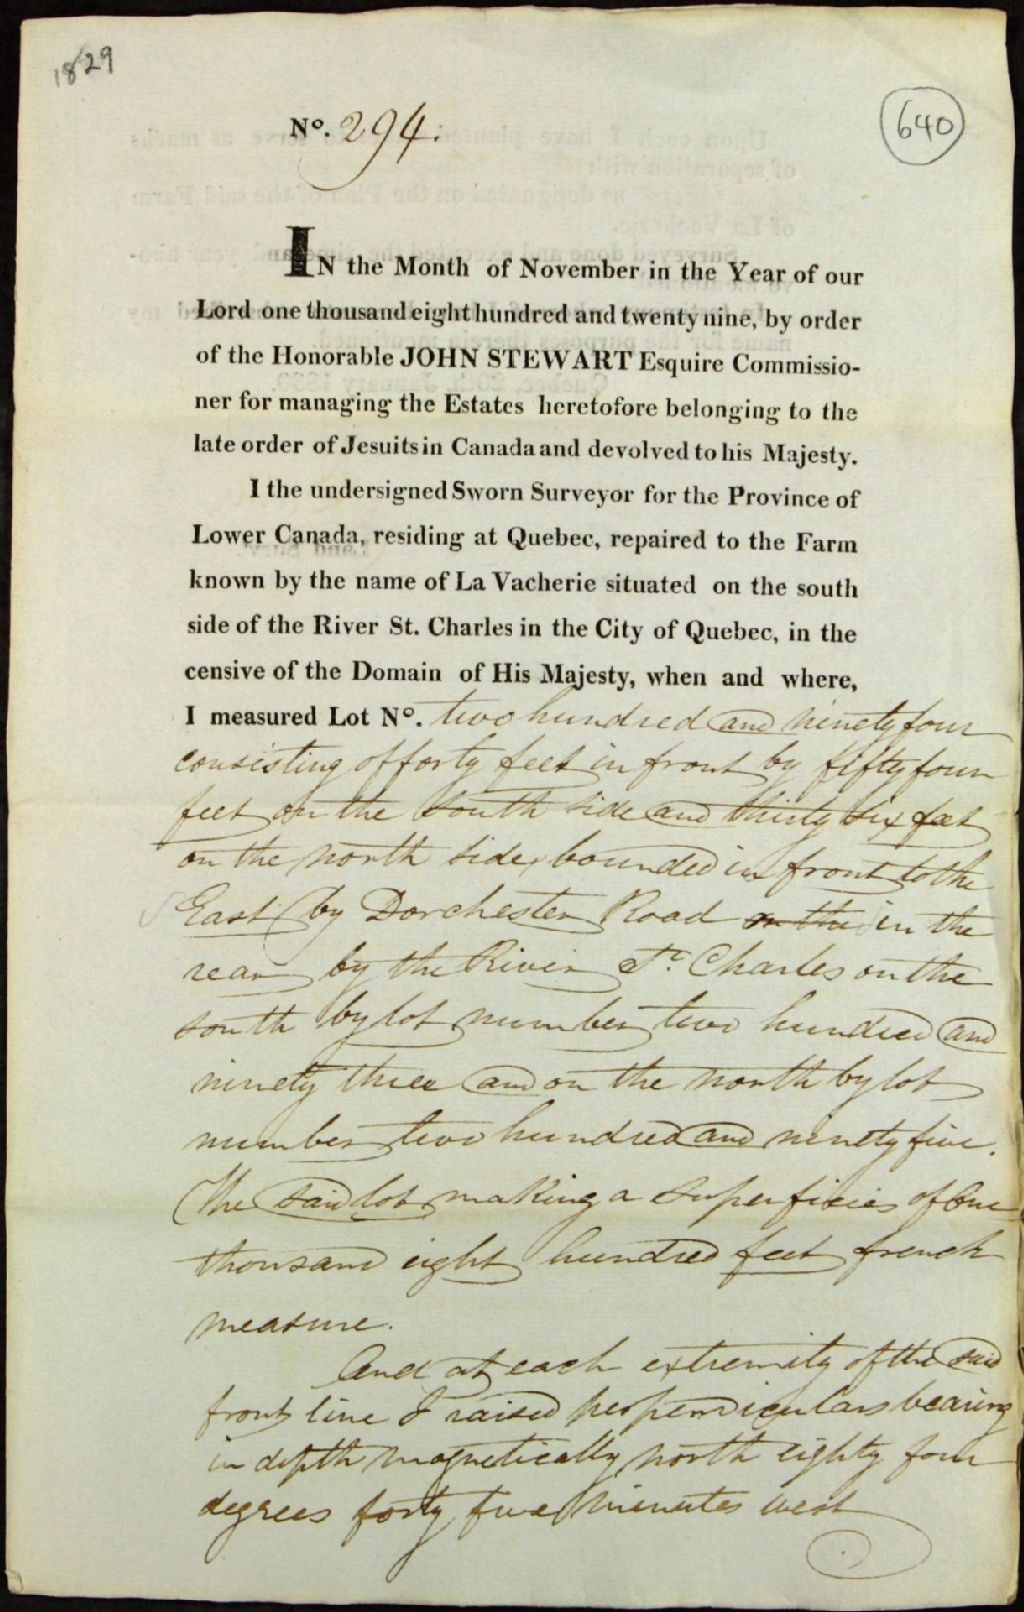 1829
640
No. 294.
IN the Month of November in the Year of our
Lord one thousand eight hundred and twenty nine, by order
of the Honorable JOHN STEWART Esquire Commissio-
ner for managing the Estates heretofore belonging to the
late order of Jesuits in Canada and devolved to his Majesty.
I the undersigned Sworn Surveyor for the Province of
Lower Canada, residing at Quebec, repaired to the Farm
known by the name of La Vacherie situated on the south
side of the River St. Charles in the City of Quebec, in the
censive of the Domain of His Majesty, when and where,
I measured Lot No. two hundred and ninety four
consisting of forty feet in front by fifty four
feet on the south side and thirty six feet
on the north side, bounded in front to the
East by Dorchester Road on the in the
rear by the River St. Charles on the
south by lot number two hundred and
ninety three and on the north by lot
number two hundred and ninety five.
The said lot making a Superficies of One
thousand eight hundred feet french
measure.
And at each extremity of the said
front line I raised perpendiculars bearing
in depth magnetically north eighty four
degrees forty five minutes west